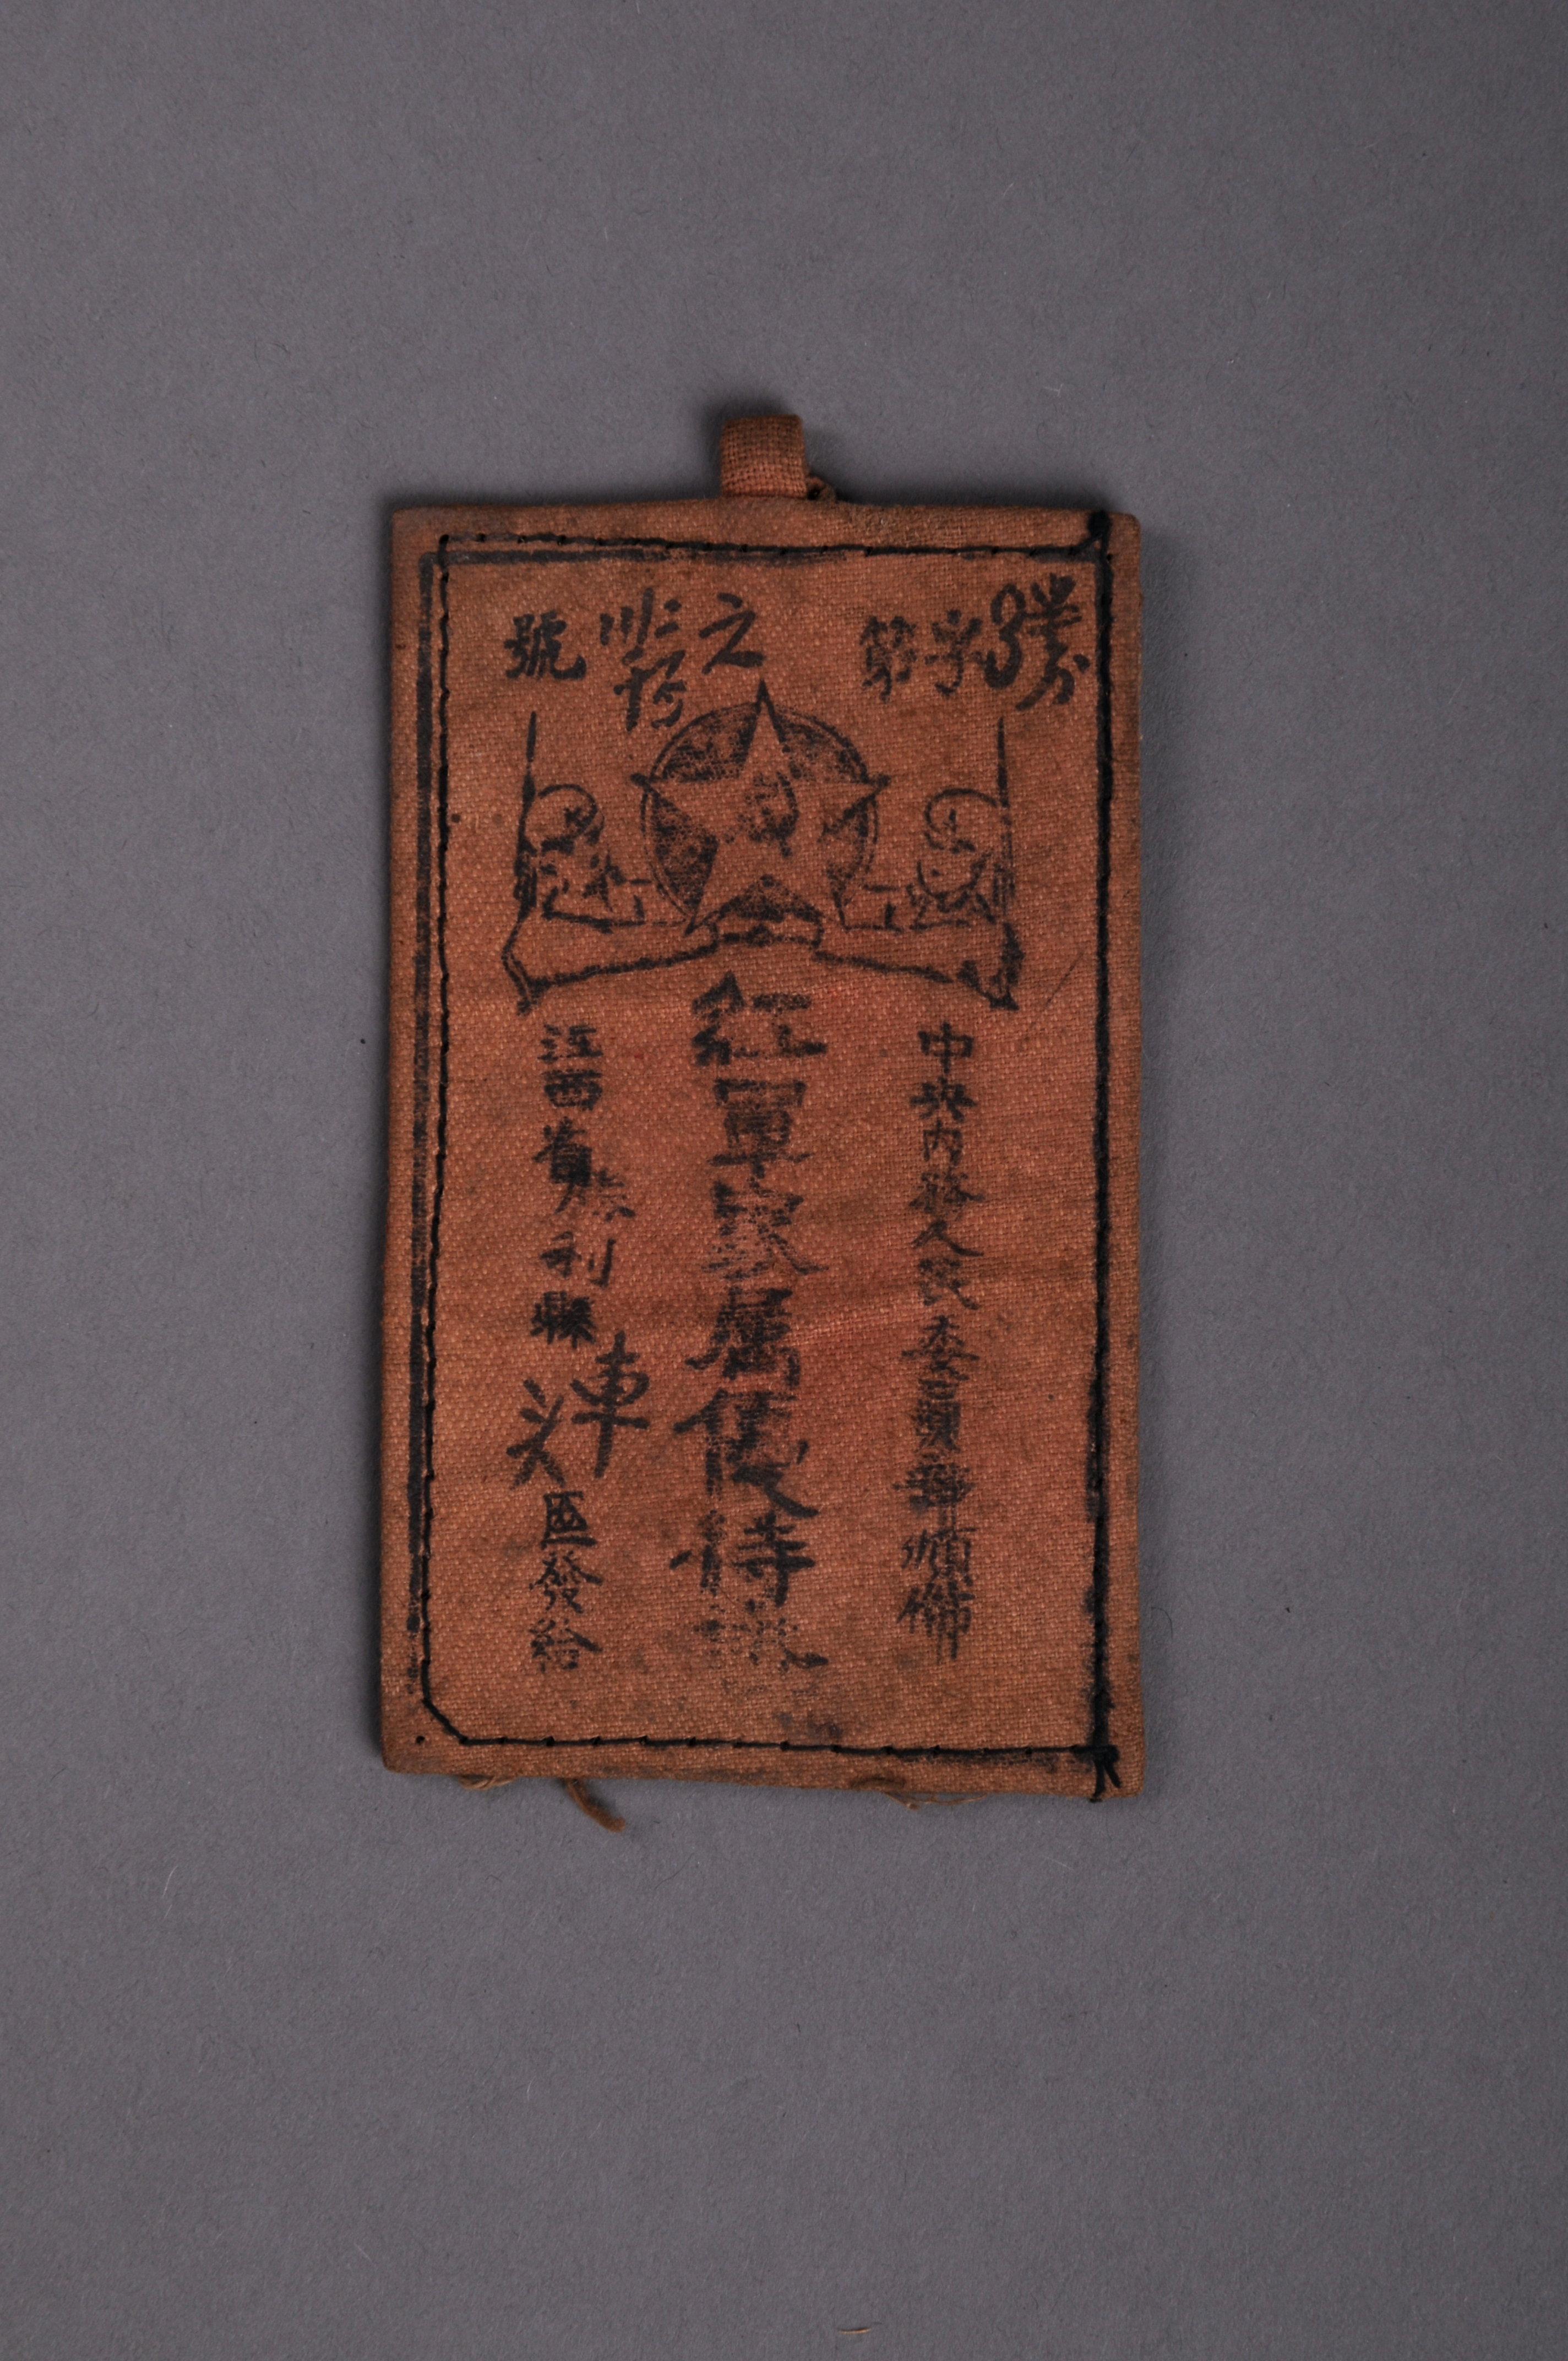 字第
之
號
中央內務人民委員部頒佈
紅軍家属優待證
江西省勝利縣車头區發給